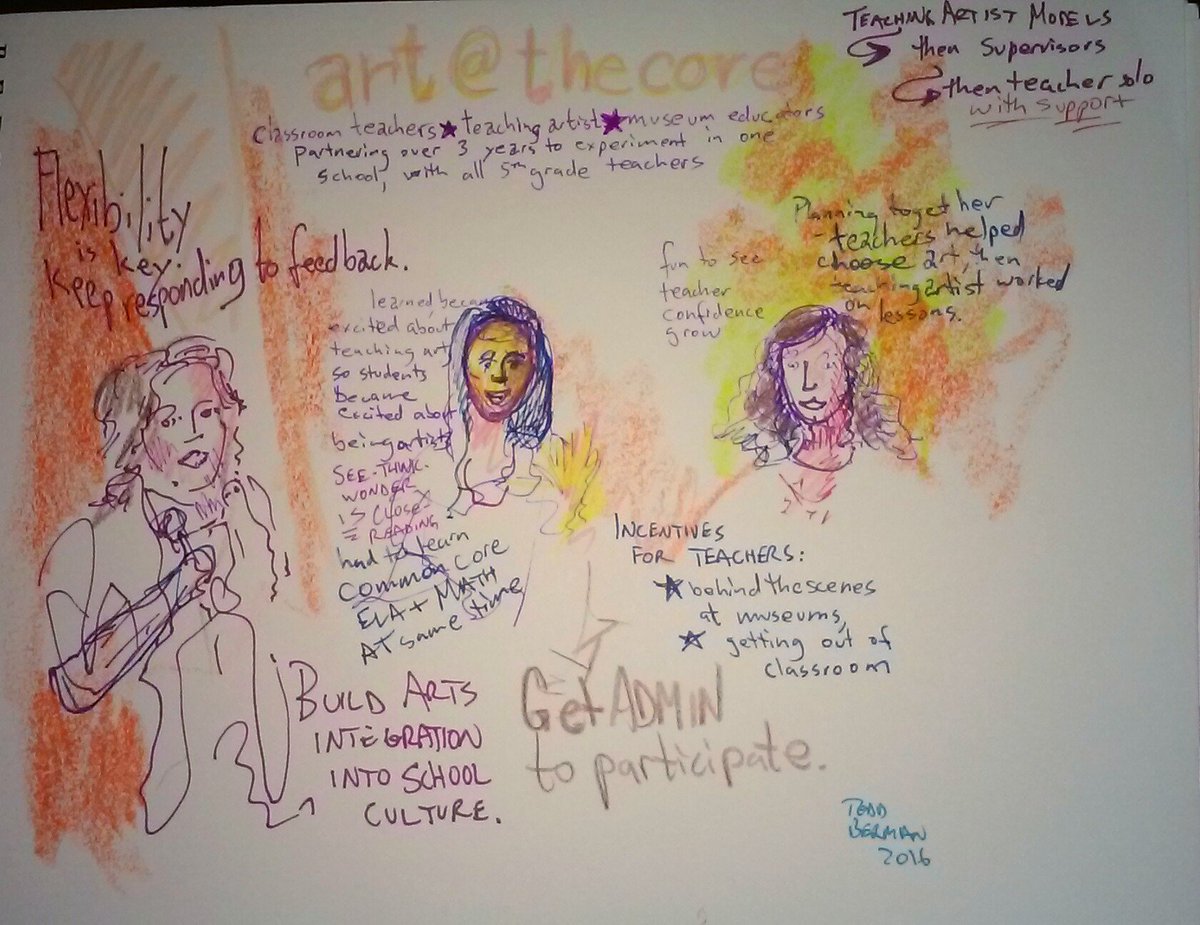 art @ the core
classroom teachers ★ teaching artist ★ museum educators
partnering over 3 years to experiment in one
school, with all 5th grade teachers
TEACHING ARTIST MODELS
then Supervisors
then teacher solo
with support
Flexibility
is key.
Keep responding to feedback.
learned, became
excited about
teaching art
so students
became
excited about
being artists
SEE-THINK-
WONDER
CLOSE-
READING
had to learn
common core
ELA + MATH
AT same time
fun to see
teacher
confidence
grow
Planning together
- teachers helped
choose art, then
teaching artist worked
on lessons.
INCENTIVES
FOR TEACHERS:
★ behind the scenes
at museums,
★ getting out of
classroom
BUILD ARTS
INTEGRATION
INTO SCHOOL
CULTURE.
Get ADMIN
to participate.
TEDD
BERMAN
2016